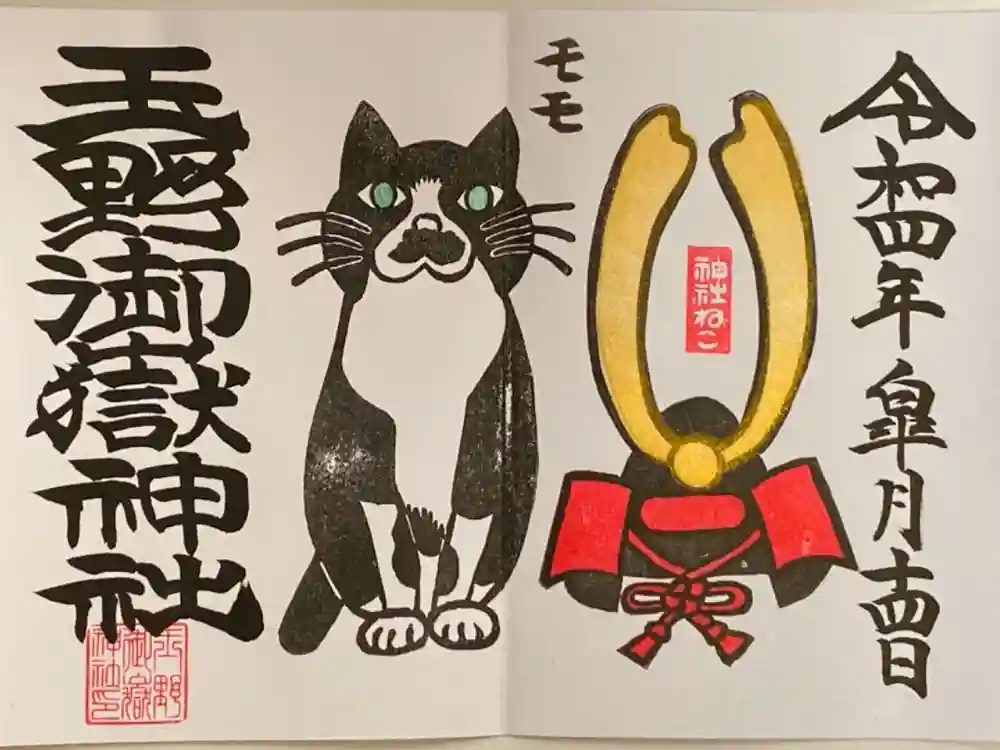 令和四年皐月十四日
神社ねこ
モモ
玉野御嶽神社
玉野
御嶽
神社印